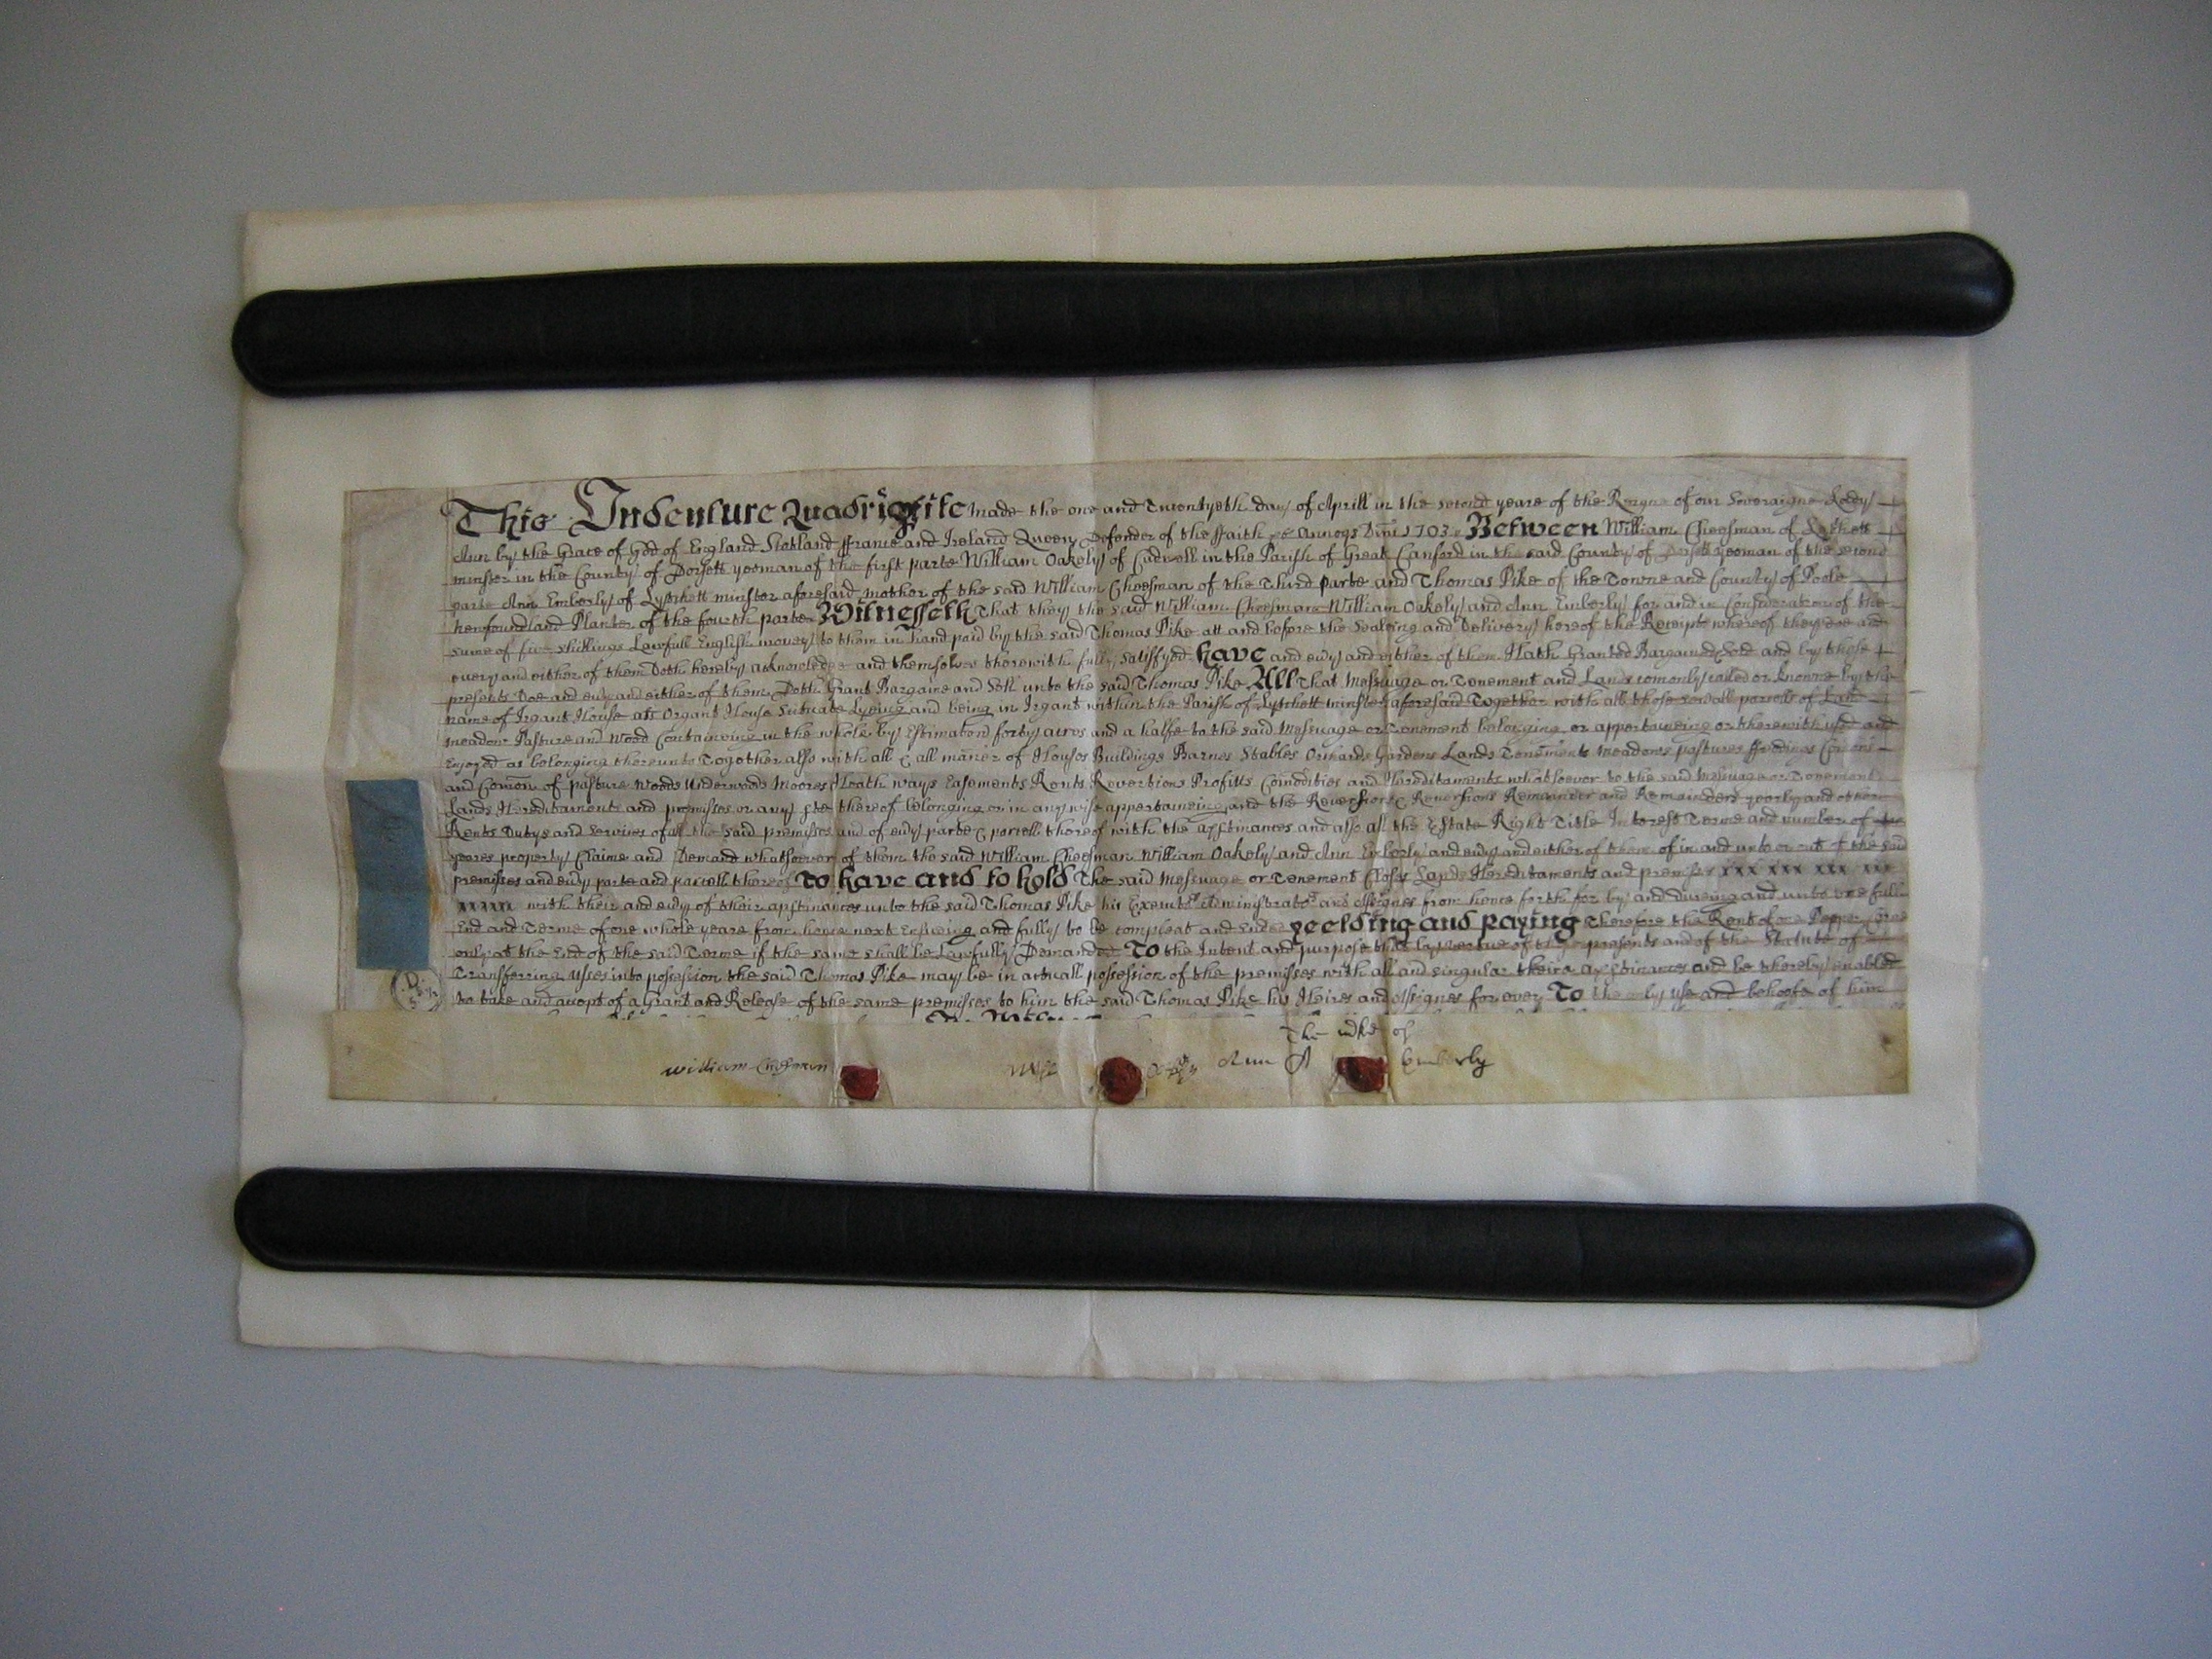 This Indenture Quadripartite made the one and Twentyeth day of Aprill in the second yeare of the Reigne of our Soveraigne Lady
Ann by the Grace of God of England Scotland ffrance and Ireland Queen Defender of the ffaith &c Annoqs Dmi 1703 Between William Cheesman of Lytchett
minster in the County of Dorsett yeoman of the first parte William Oakely of Cudnell in the Parish of Great Canford in the said County of Dorsett yeoman of the second
parte Ann Emberly of Lytchett minster aforesaid mother of the said William Cheesman of the Third parte and Thomas Pike of the Towne and County of Poole
newfoundland Planter of the fourth parte Witnesseth That they the said William Cheesman William Oakely and Ann Emberly for and in Consideration of the
sume of five shillings Lawfull English money to them in hand paid by the said Thomas Pike att and before the Sealeing and Delivery hereof the Receipt whereof they doe and
every and either of them Doth hereby acknowledge and themselves therewith fully satisfyed have and evy and either of them Hath Granted Bargained & Sold and by these
presents Doe and evy and either of them Doth Grant Bargaine and Sell unto the said Thomas Pike All That Messuage or Tenement and Lands comonly called or knowne by the
name of Irgant House als Organt House Scituate Lyeing and being in Irgant within the Parish of Lytchett minster aforesaid Together with all those severall parcells of Land
meadow Pasture and Wood Containeing in the whole by Estimation forty acres and a halfe to the said Messuage or Tenement belonging or appertaineing or therewith used and
Enjoyed as belonging thereunto Together also with all & all maner of Houses Buildings Barnes Stables Orchards Gardens Lands Tenements meadows pastures ffeedings Comons
and Comon of pasture Woods Underwoods Moores Heath ways Easements Rents Reversions Profitts Comodities and Hereditaments whatsoever to the said Messuage or Tenement
Lands Hereditaments and premisses or any pte thereof belonging or in any wise appertaineing and the Reversion & Reversions Remainder and Remainders yearly and other
Rents Dutys and Services of all the said premisses and of evy parte & parcell thereof with the apptinances and also all the Estate Right Title Interest Terme and number of
yeares property Claime and Demand whatsoever of them the said William Cheesman William Oakely and Ann Emberly and evy and either of them of in and unto or out of the said
premisses and evy parte and parcell thereof To have and to hold The said Messuage or Tenement Closes Lands Hereditaments and premisses xxx xx xx xx
xxxxx with their and evy of their apptinances unto the said Thomas Pike his Executrs Administratrs and Assignes from hence forth for by and dureing and unto one full
End and Terme of one whole yeare from hence next Ensueing and fully to be compleat and Ended yeelding and paying Therefore the Rent of one Pepper Corne
only at the End of the said Terme if the same shall be Lawfully Demanded To the Intent and purpose that by vertue of these presents and of the Statute of
Transferring Usses into possession the said Thomas Pike may be in actuall possession of the premisses with all and singular theire apptinances and be thereby enabled
to take and accept of a Grant and Release of the same premisses to him the said Thomas Pike his Heires and Assignes for ever To the only use and behoofe of him
The mke of
William Chesman Ann A Emberly